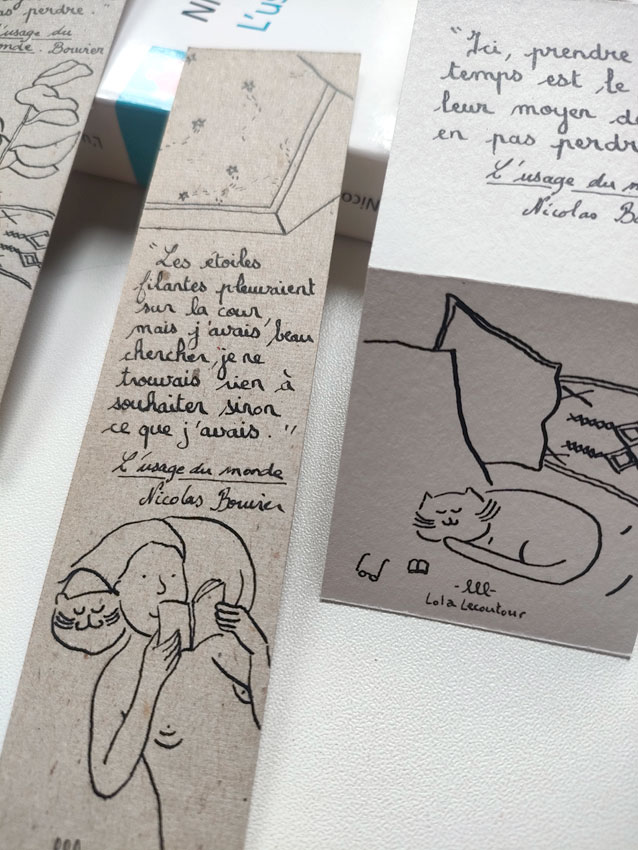 as perdre."
L'usage du
monde. Bouvier
NI
L'us
Nico
"Les étoiles
filantes pleuvaient
sur la cour
mais j'avais beau
chercher, je ne
trouvais rien à
souhaiter sinon
ce que j'avais."
L'usage du monde
Nicolas Bouvier
"Ici, prendre
temps est le
leur moyen de
en pas perdr
L'usage du m
Nicolas Bo
-lll-
Lola Lecoutour
lll